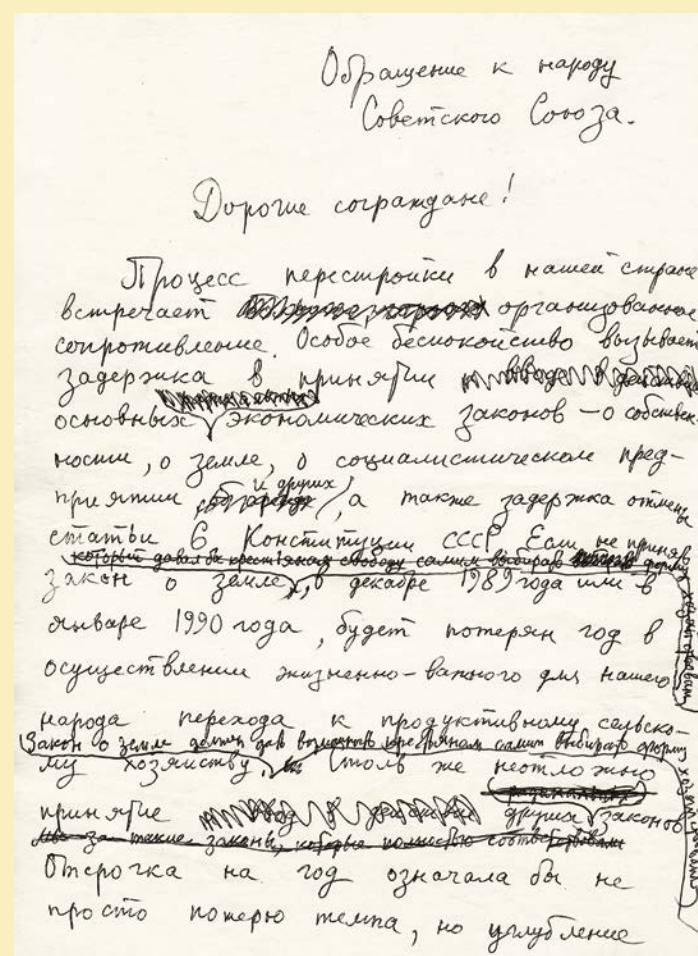 Обращение к народу
Советского Союза.
Дорогие сограждане!
Процесс перестройки в нашей стране
встречает организованное
сопротивление. Особое беспокойство вызывает
задержка в принятии
основных экономических законов – о собствен-
ности, о земле, о социалистическом пред-
и других
приятии, а также задержка отмены
статьи 6 Конституции СССР. Если не принять
который давал бы крестьянам свободу самим выбирать форму
закон о земле, в декабре 1989 года или в
январе 1990 года, будет потерян год в
осуществлении жизненно-важного для нашего
народа перехода к продуктивному сельско-
Закон о земле должен дать возможность крестьянам самим выбирать форму
му хозяйству. Столь же неотложно
принятие других законов
такие законы, которые полностью
Отсрочка на год означала бы не
просто потерю темпа, но углубление